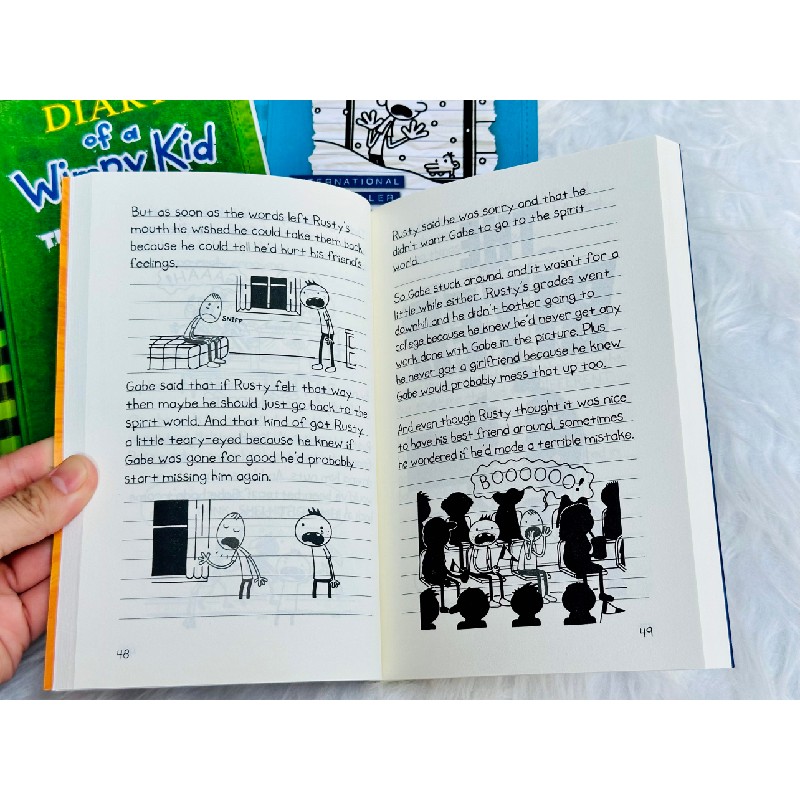 DIARY
of a
Wimpy Kid
But as soon as the words left Rusty's
mouth he wished he could take them back
because he could tell he'd hurt his friend's
feelings.
SNIFF
Gabe said that if Rusty felt that way
then maybe he should just go back to the
spirit world. And that kind of got Rusty
a little teary-eyed because he knew if
Gabe was gone for good he'd probably
start missing him again.
48
Rusty said he was sorry and that he
didn't want Gabe to go to the spirit
world.
So Gabe stuck around, and it wasn't for a
little while either. Rusty's grades went
downhill and he didn't bother going to
college because he knew he'd never get any
work done with Gabe in the picture. Plus
he never got a girlfriend because he knew
Gabe would probably mess that up too.
And even though Rusty thought it was nice
to have his best friend around, sometimes
he wondered if he'd made a terrible mistake.
BOOOOOO!
49